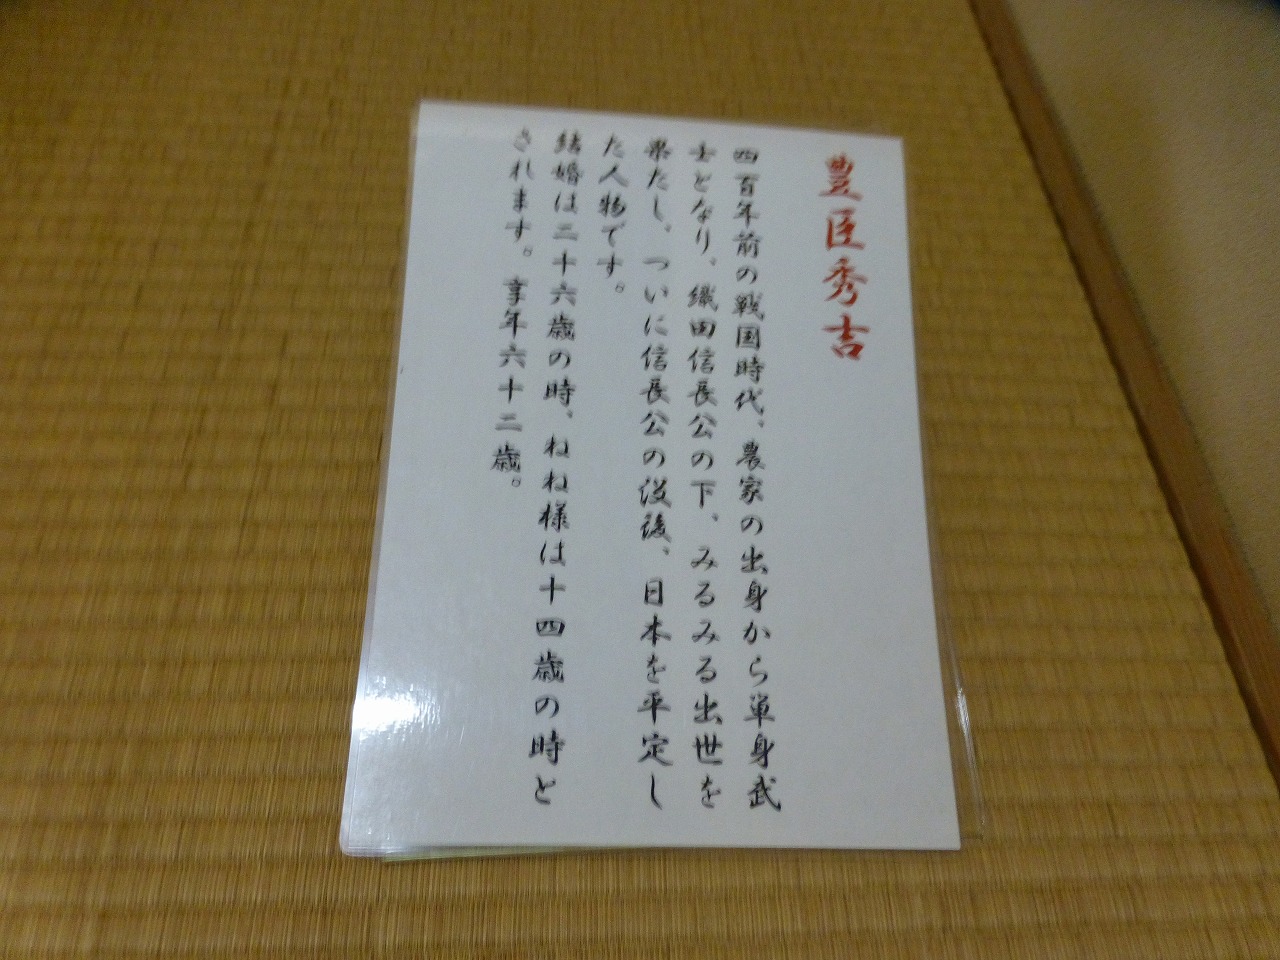 豊臣秀吉
四百年前の戦国時代、農家の出身から単身武
士となり、織田信長公の下、みるみる出世を
果たし、ついに信長公の没後、日本を平定し
た人物です。
結婚は二十六歳の時、ねね様は十四歳の時と
されます。享年六十二歳。